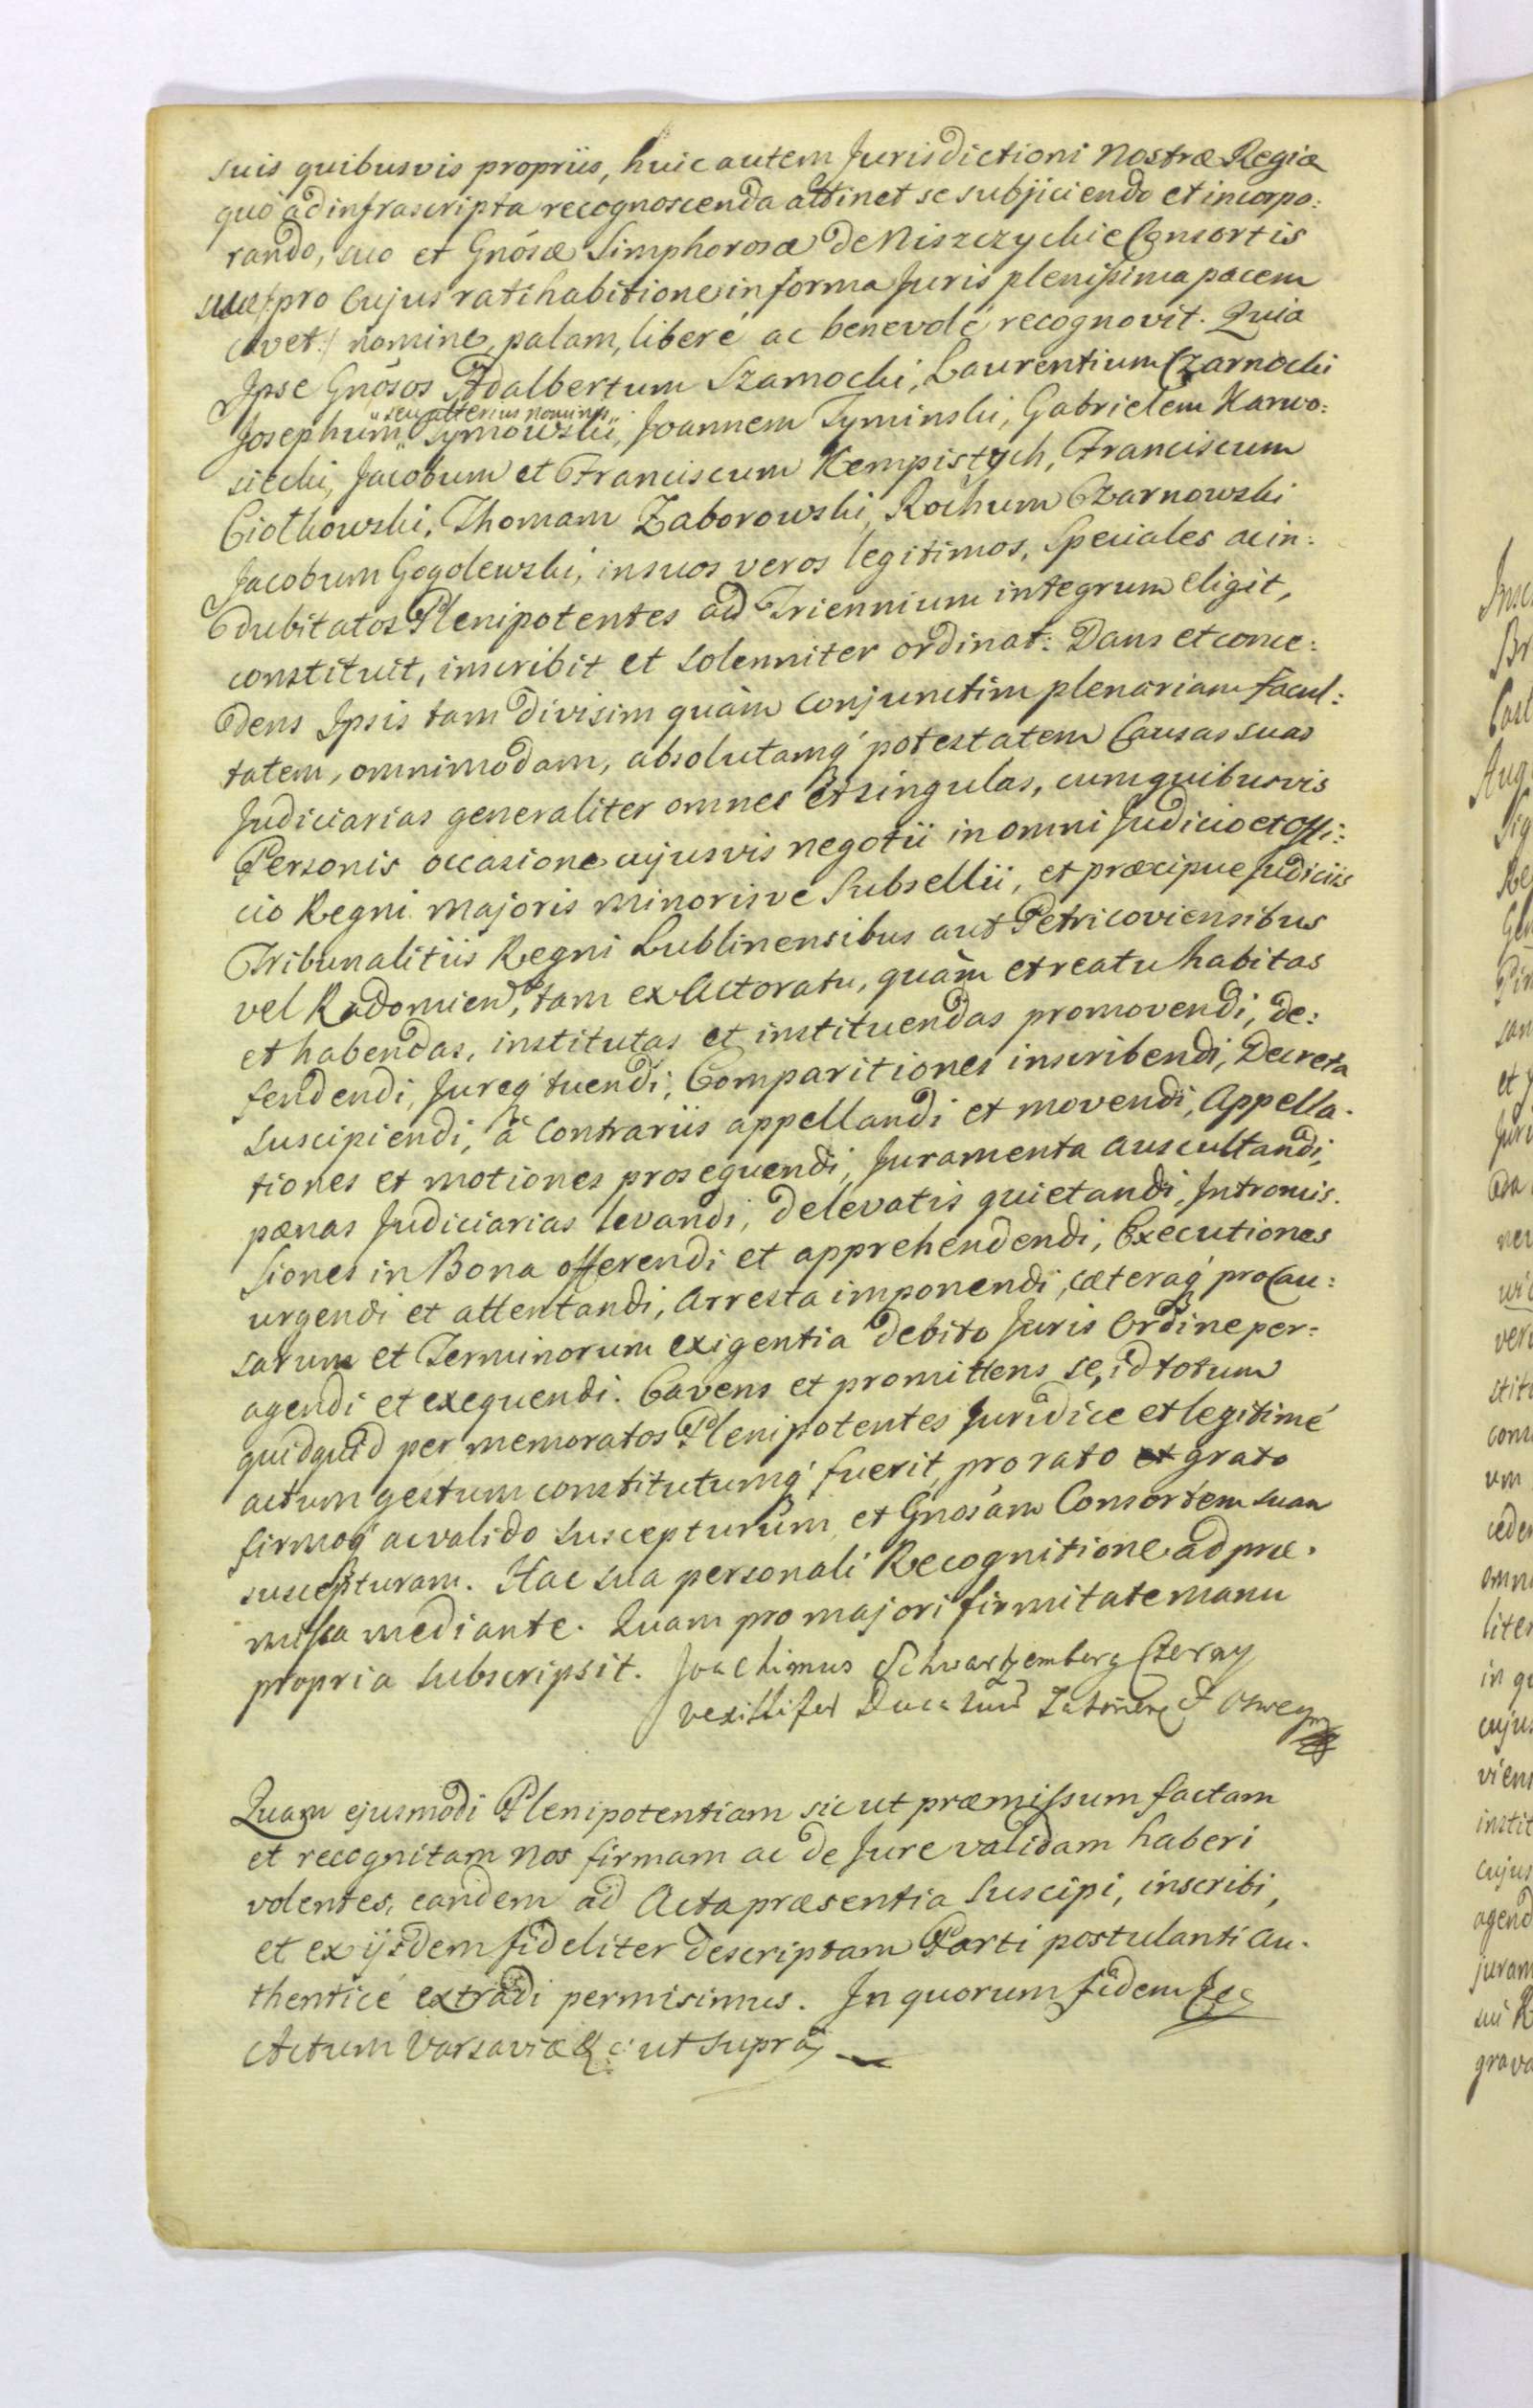 suis quibusvis propriis, huic autem Jurisdictioni Nostræ Regiæ
quò ad infrascripta recognoscenda attinet se subjiciendo et incorpo:
rando, suo et Gnosæ Simphorosæ de Niszczyckie Consortis
suæ /:pro Cujus ratihabitione in forma Juris plenissima pacem
cavet:/ nomine, palam, liberè ac benevolè recognovit. Quia
Ipse Gnosos Adalbertum Szamocki, Laurentium Czarnocki
seu alterius nominis
Josephum Tymowski, Joannem Tyminski, Gabrielem Karwo:
siecki, Jacobum et Franciscum Kempistych, Franciscum
Ciotkowski, Thomam Zaborowski, Rochum Czarnowski
Jacobum Gogolewski, in suos veros legitimos, Speciales ac in:
dubitatos Plenipotentes ad Triennium integrum eligit,
constituit, inscribit et solenniter ordinat: Dans et conce:
dens Ipsis tam divisim quàm conjunctim plenariam facul:
tatem, omnimodam, absolutamq' potestatem Causas suas
Judiciarias generaliter omnes et singulas, cum quibusvis
Personis occasione cujusvis negotii in omni Judicio et Offi:
cio Regni majoris minorisve Subsellii, et præcipue Judiciis
Tribunalitiis Regni Lublinensibus aut Petricoviensibus
vel Radomien, tam ex Actoratu, quàm et reatu habitas
et habendas, institutas et instituendas promovendi, de:
fendendi, Jureq' tuendi, Comparitiones inscribendi, Decreta
suscipiendi, à Contrariis appellandi et movendi, Appella.
tiones et motiones prosequendi, Juramenta auscultandi,
pænas Judiciarias levandi, de levatis quietandi, Intromis.
siones in Bona offerendi et apprehendendi, Executiones
urgendi et attentandi, Arresta imponendi, cæteraq' pro Cau:
sarum et Terminorum exigentia debito Juris Ordine per=
agendi et exequendi. Cavens et promittens se, id totum
quidquid per memoratos Plenipotentes Juridice et legitimè
actum gestum constitutumq' fuerit, pro rato et grato
firmoq' ac valido suscepturum et Gnosam Consortem suam
suscepturam. Hac sua personali Recognitione ad præ.
missa mediante. Quam pro majori firmitate manu
propria subscripsit. Joachimus Schwartzemberg Czerny
vexillifer Ducatuum Zatorien &
Quam ejusmodi Plenipotentiam sicut præmissum factam
et recognitam Nos firmam ac de Jure validam haberi
volentes, eandem ad Acta præsentia suscipi, inscribi,
et ex ijsdem fideliter descriptam Parti postulanti au.
thenticè extradi permisimus. In quorum fidem &c
Actum Varsaviæ &c: ut suprà